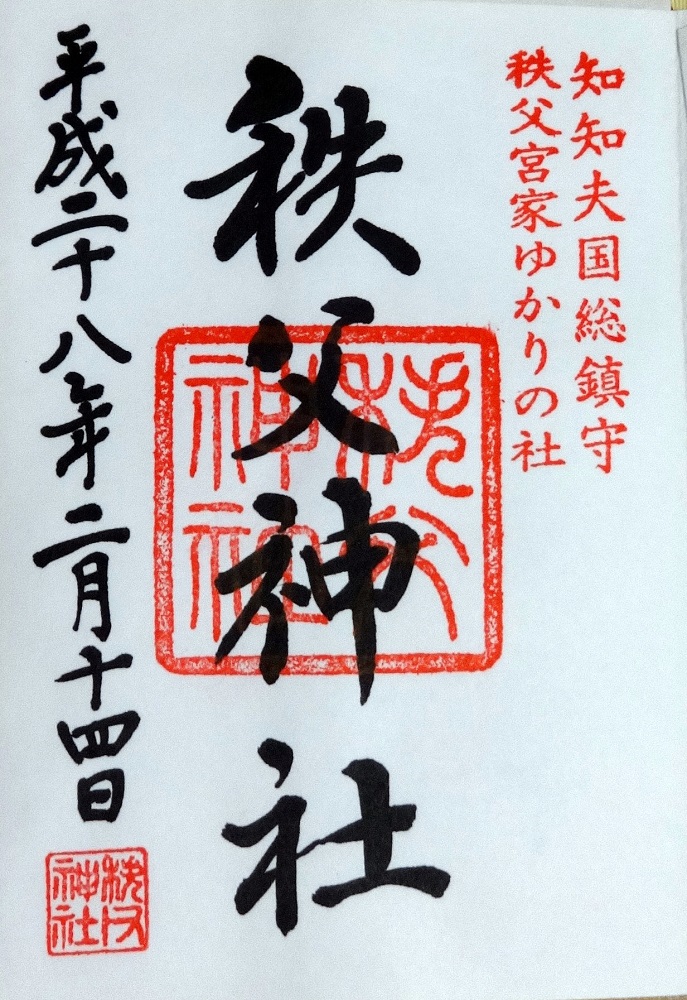 知知夫国総鎮守
秩父宮家ゆかりの社
秩父神社
秩父神社
平成二十八年二月十四日
秩父神社